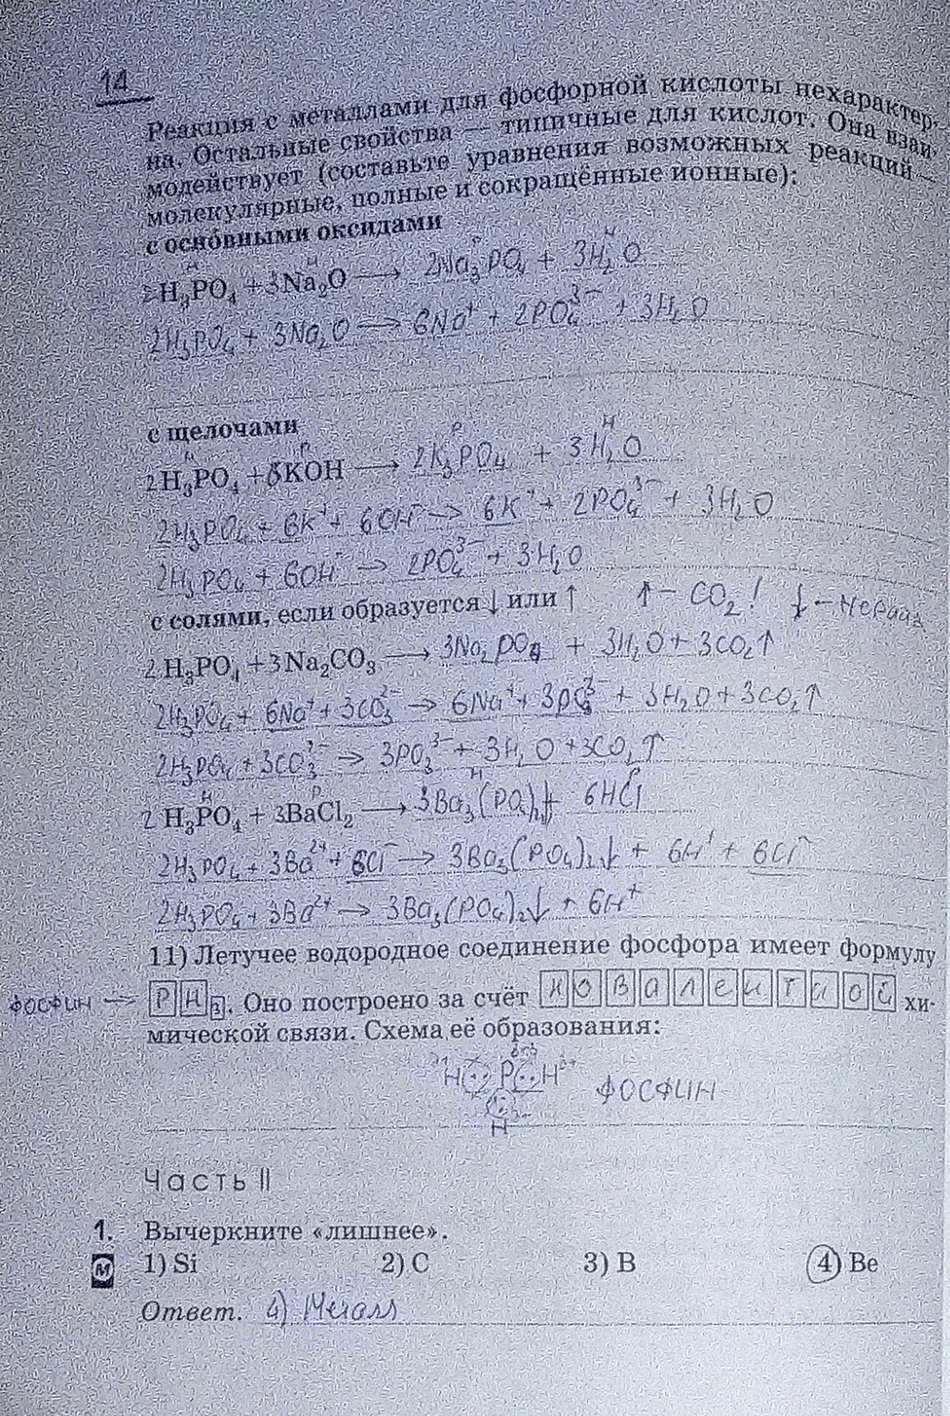 14
Реакция с металлами для фосфорной кислоты нехарактер-
на. Остальные свойства — типичные для кислот. Она взаи-
модействует (составьте уравнения возможных реакций —
молекулярные, полные и сокращённые ионные):
с оснóвными оксидами
2H₃PO₄ + 3Na₂O ⟶ 2Na₃PO₄ + 3H₂O
2H₃PO₄ + 3Na₂O ⟶ 6Na⁺ + 2PO₄³⁻ + 3H₂O
с щелочами
2H₃PO₄ + 6KOH ⟶ 2K₃PO₄ + 3H₂O
2H₃PO₄ + 6K⁺ + 6OH⁻ → 6K⁺ + 2PO₄³⁻ + 3H₂O
2H₃PO₄ + 6OH⁻ → 2PO₄³⁻ + 3H₂O
с солями, если образуется ↓ или ↑ ↑ – CO₂! ↓ –
2H₃PO₄ + 3Na₂CO₃ ⟶ 3Na₂PO₄ + 3H₂O + 3CO₂↑
2H₃PO₄ + 6Na⁺ + 3CO₃²⁻ → 6Na⁺ + 3PO₃³⁻ + 3H₂O + 3CO₂↑
2H₃PO₄ + 3CO₃²⁻ → 3PO₃³⁻ + 3H₂O + 3CO₂↑
2H₃PO₄ + 3BaCl₂ ⟶ 3Ba₃(PO₄)₂↓ + 6HCl
2H₃PO₄ + 3Ba²⁺ + 6Cl⁻ → 3Ba₃(PO₄)₂↓ + 6H⁺ + 6Cl⁻
2H₃PO₄ + 3Ba²⁺ → 3Ba₃(PO₄)₂↓ + 6H⁺
11) Летучее водородное соединение фосфора имеет формулу
фосфин → PH₃. Оно построено за счёт ковалентной хи-
мической связи. Схема её образования:
H P H фосфин
H
Часть II
1. Вычеркните «лишнее».
М 1) Si 2) C 3) B 4) Be
Ответ. 4) Металл